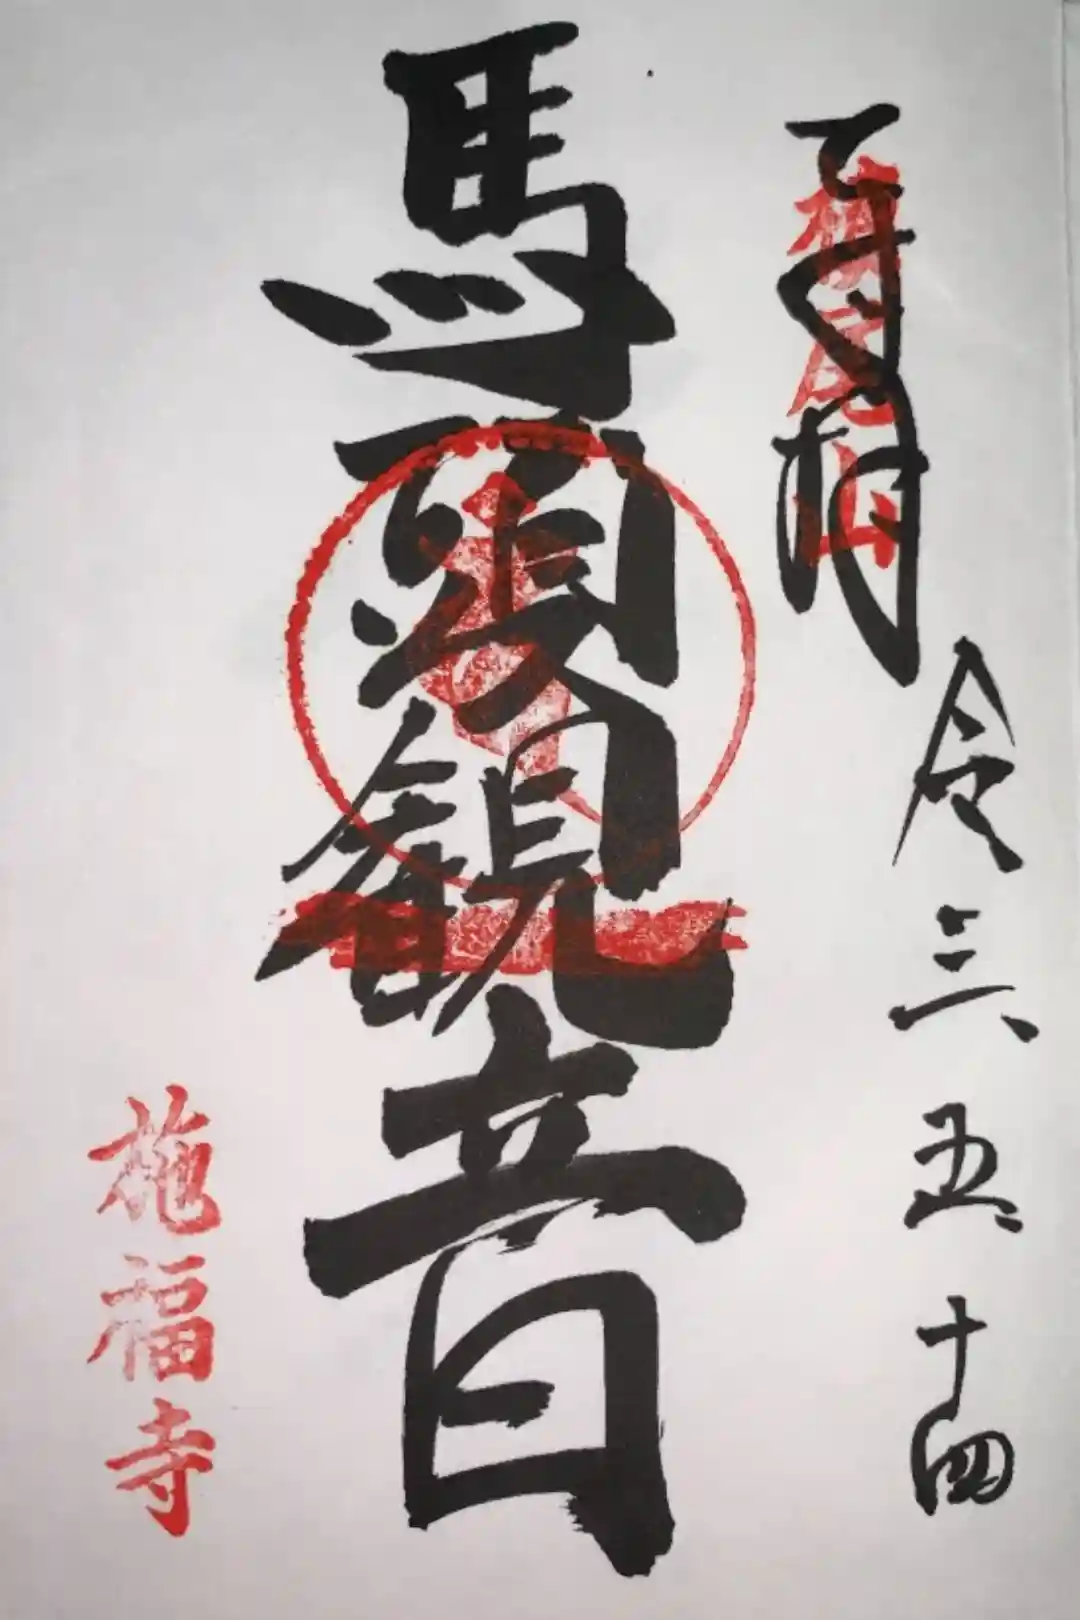 奉拝
槇尾山
令三 五 十四
馬頭観音
施福寺